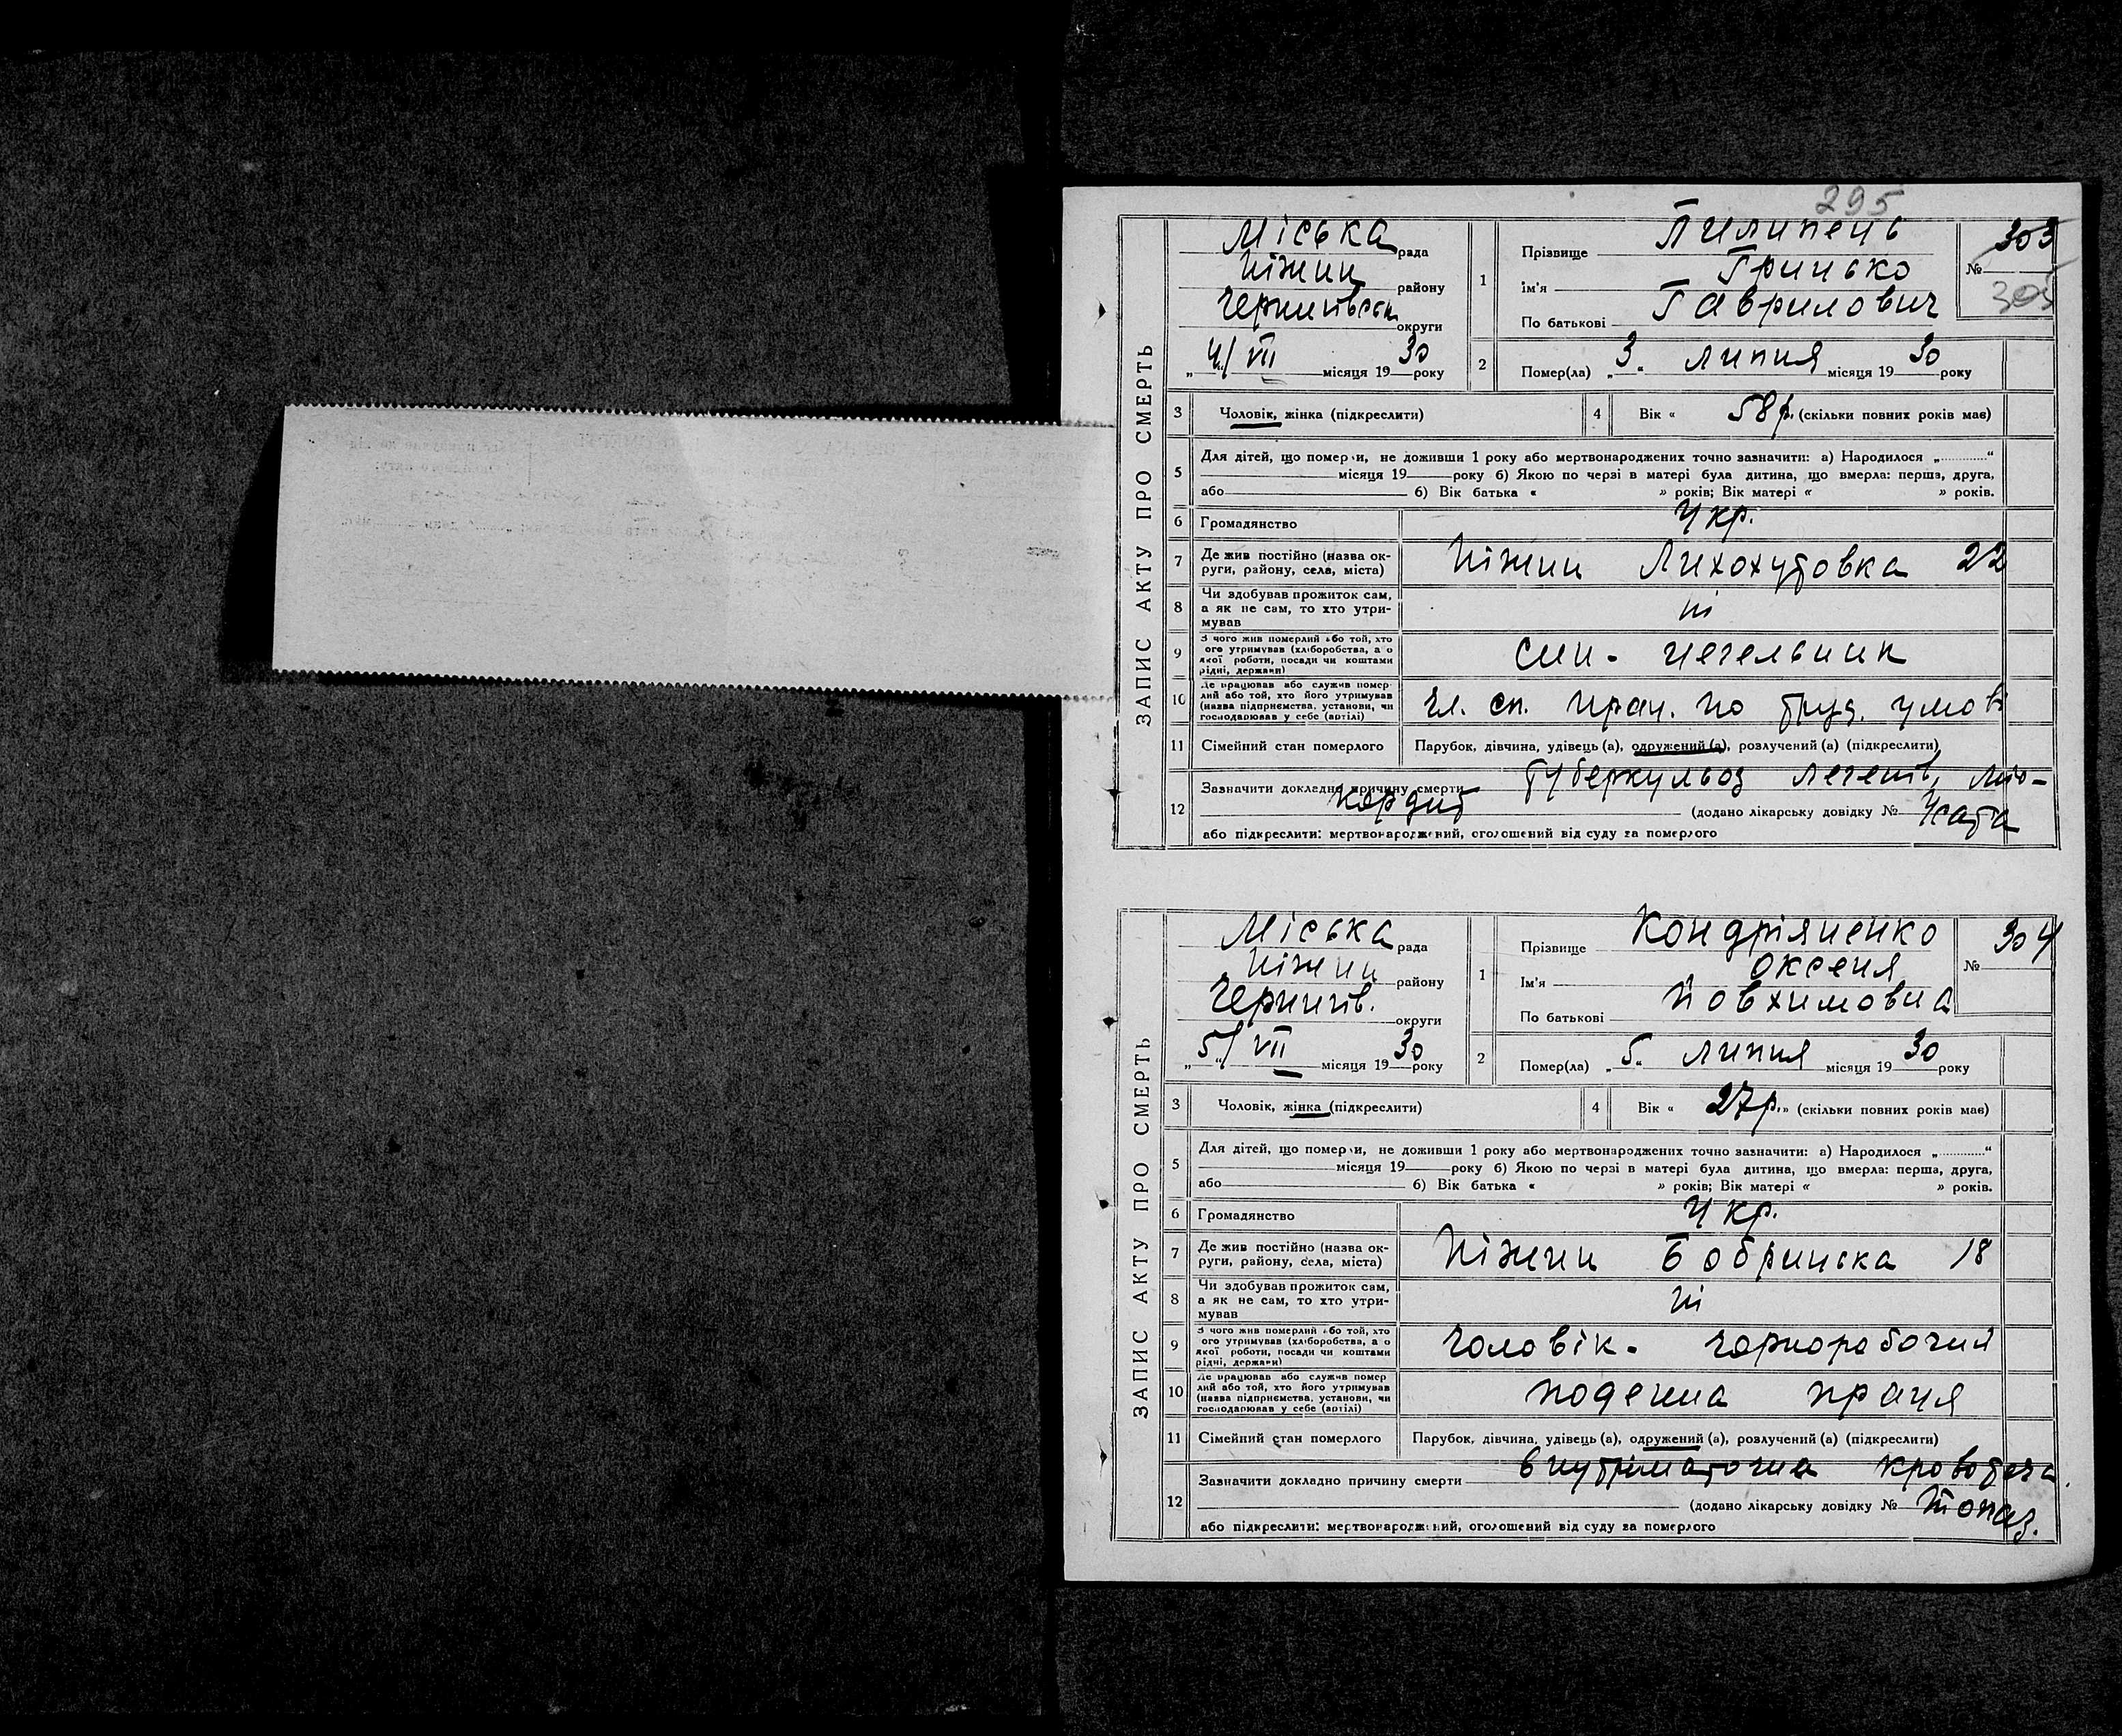 295
ЗАПИС АКТУ ПРО СМЕРТЬ
Міська рада
Ніжин району
Чернигівськ округи
„4/“ VII місяця 1930 року
1
Прізвище Пилипець
Ім'я Грицько
По батькові Гаврилович
№ 303
303
2
Помер(ла) „3“ липня місяця 1930 року
3 Чоловік, жінка (підкреслити)
4 Вік « 58 р. (скільки повних років має)
5
Для дітей, що померли, не доживши 1 року або мертвонароджених точно зазначити: а) Народилося „............“
місяця 19 року б) Якою по черзі в матері була дитина, що вмерла: перша, друга,
або б) Вік батька « » років; Вік матері « » років.
6 Громадянство Укр.
7 Де жив постійно (назва ок-
руги, району, села, міста) Ніжин Лихохутовка 22
8 Чи здобував прожиток сам,
а як не сам, то хто утри-
мував ні
9 З чого жив померлий або той, хто
ого утримував (хліборобства, а о
якої роботи, посади чи коштами
рідні, держави) син - цегельник
10 Де працював або служив помер
лий або той, хто його утримував
(назва підприємства, установи, чи
господарював у себе (артілі) чл. сп. прац. по труд. умов
11 Сімейний стан померлого Парубок, дівчина, удівець (а), одружений (а), розлучений (а) (підкреслити)
12
Зазначити докладно причину смерти туберкульоз легенів, міо-
кордит (додано лікарську довідку №
або підкреслити: мертвонароджений, оголошений від суду за померлого
ЗАПИС АКТУ ПРО СМЕРТЬ
Міська рада
Ніжин району
Чернигів. округи
„5/“ VII місяця 1930 року
1
Прізвище Кондріяненко
Ім'я Оксеня
По батькові Йовхимовна
№ 304
2
Помер(ла) „5“ липня місяця 1930 року
3 Чоловік, жінка (підкреслити)
4 Вік « 27 р. » (скільки повних років має)
5
Для дітей, що померли, не доживши 1 року або мертвонароджених точно зазначити: а) Народилося „............“
місяця 19 року б) Якою по черзі в матері була дитина, що вмерла: перша, друга,
або б) Вік батька « » років; Вік матері « » років.
6 Громадянство Укр.
7 Де жив постійно (назва ок-
руги, району, села, міста) Ніжин Бобринська 18
8 Чи здобував прожиток сам,
а як не сам, то хто утри-
мував ні
9 З чого жив померлий або той, хто
ого утримував (хліборобства, а о
якої роботи, посади чи коштами
рідні, держави) чоловік - чорнорабочий
10 Де працював або служив помер
лий або той, хто його утримував
(назва підприємства, установи, чи
господарював у себе (артілі) поденна праця
11 Сімейний стан померлого Парубок, дівчина, удівець (а), одружений (а), розлучений (а) (підкреслити)
12
Зазначити докладно причину смерти внутріматочна кровотеча
(додано лікарську довідку № Топаз.
або підкреслити: мертвонароджений, оголошений від суду за померлого